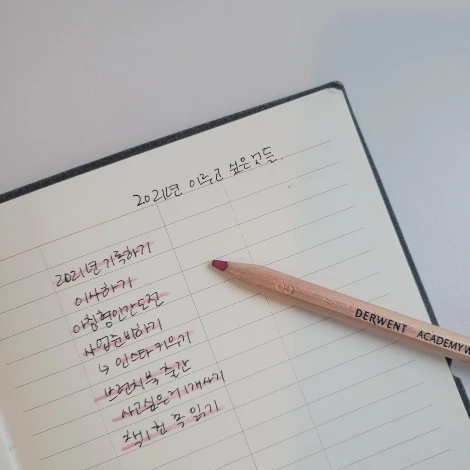 2021년 이루고 싶은것들.
2021년 기록하기
이사하기
아침형인간도전
사업준비하기
↳ 인스타 키우기
브런치북 출간
사고싶은거 1개사기
책 1권 쭉 읽기
DERWENT ACADEMY